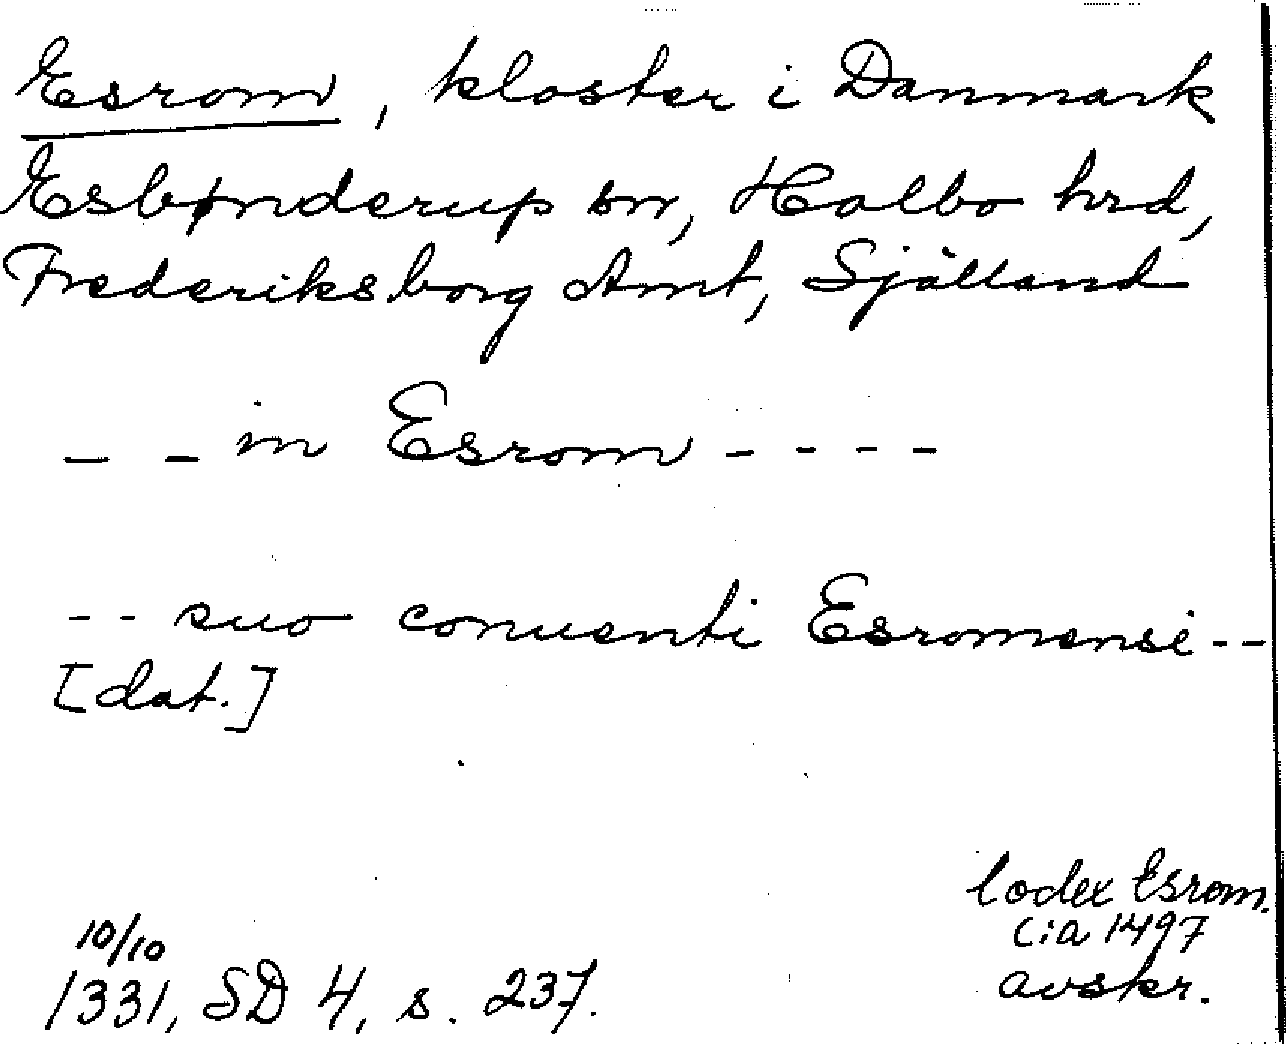 Esrom, kloster i Danmark
Esbønderup sn, Holbo hrd,
Frederiksborg Amt, Själland
- - in Esrom - - - -
- - suo conuenti Esromensi - -
[dat.]
Codex Esrom.
c:a 1497
avskr.
10/10
1331, SD 4, s. 237.